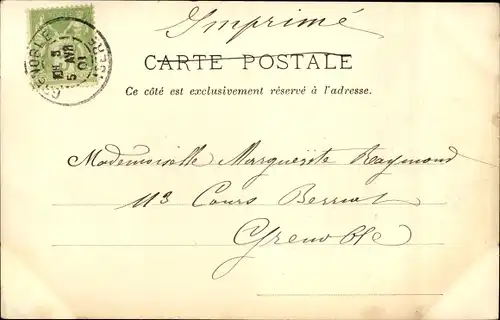 Imprimé
GRENOBLE
5 AVR 01
CARTE POSTALE
Ce côté est exclusivement réservé à l'adresse.
Mademoiselle Marguerite Raymond
113 Cours Berriat
Grenoble